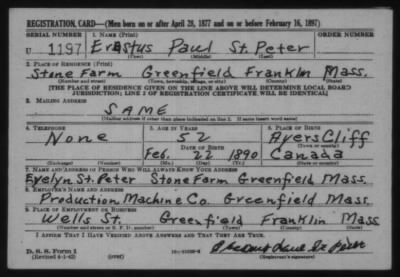 REGISTRATION CARD—(Men born on or after April 28, 1877 and on or before February 16, 1897)
SERIAL NUMBER 1. NAME (Print) ORDER NUMBER
U 1197 Erastus Paul St. Peter
(First) (Middle) (Last)
2. PLACE OF RESIDENCE (Print)
Stone Farm Greenfield Franklin Mass.
(Number and street) (Town, township, village, or city) (County) (State)
[THE PLACE OF RESIDENCE GIVEN ON THE LINE ABOVE WILL DETERMINE LOCAL BOARD
JURISDICTION; LINE 2 OF REGISTRATION CERTIFICATE WILL BE IDENTICAL]
3. MAILING ADDRESS
SAME
(Mailing address if other than place indicated on line 2. If same insert word same)
4. TELEPHONE 5. AGE IN YEARS 6. PLACE OF BIRTH
None 52 Ayers Cliff
DATE OF BIRTH (Town or county)
Feb. 22 1890 Canada
(Exchange) (Number) (Mo.) (Day) (Yr.) (State or country)
7. NAME AND ADDRESS OF PERSON WHO WILL ALWAYS KNOW YOUR ADDRESS
Evelyn St. Peter Stone Farm Greenfield Mass.
8. EMPLOYER'S NAME AND ADDRESS
Production Machine Co Greenfield Mass.
9. PLACE OF EMPLOYMENT OR BUSINESS
Wells St. Greenfield Franklin Mass
(Number and street or R. F. D. number) (Town) (County) (State)
I AFFIRM THAT I HAVE VERIFIED ABOVE ANSWERS AND THAT THEY ARE TRUE.
D. S. S. Form 1
(Revised 4-1-42) (over)